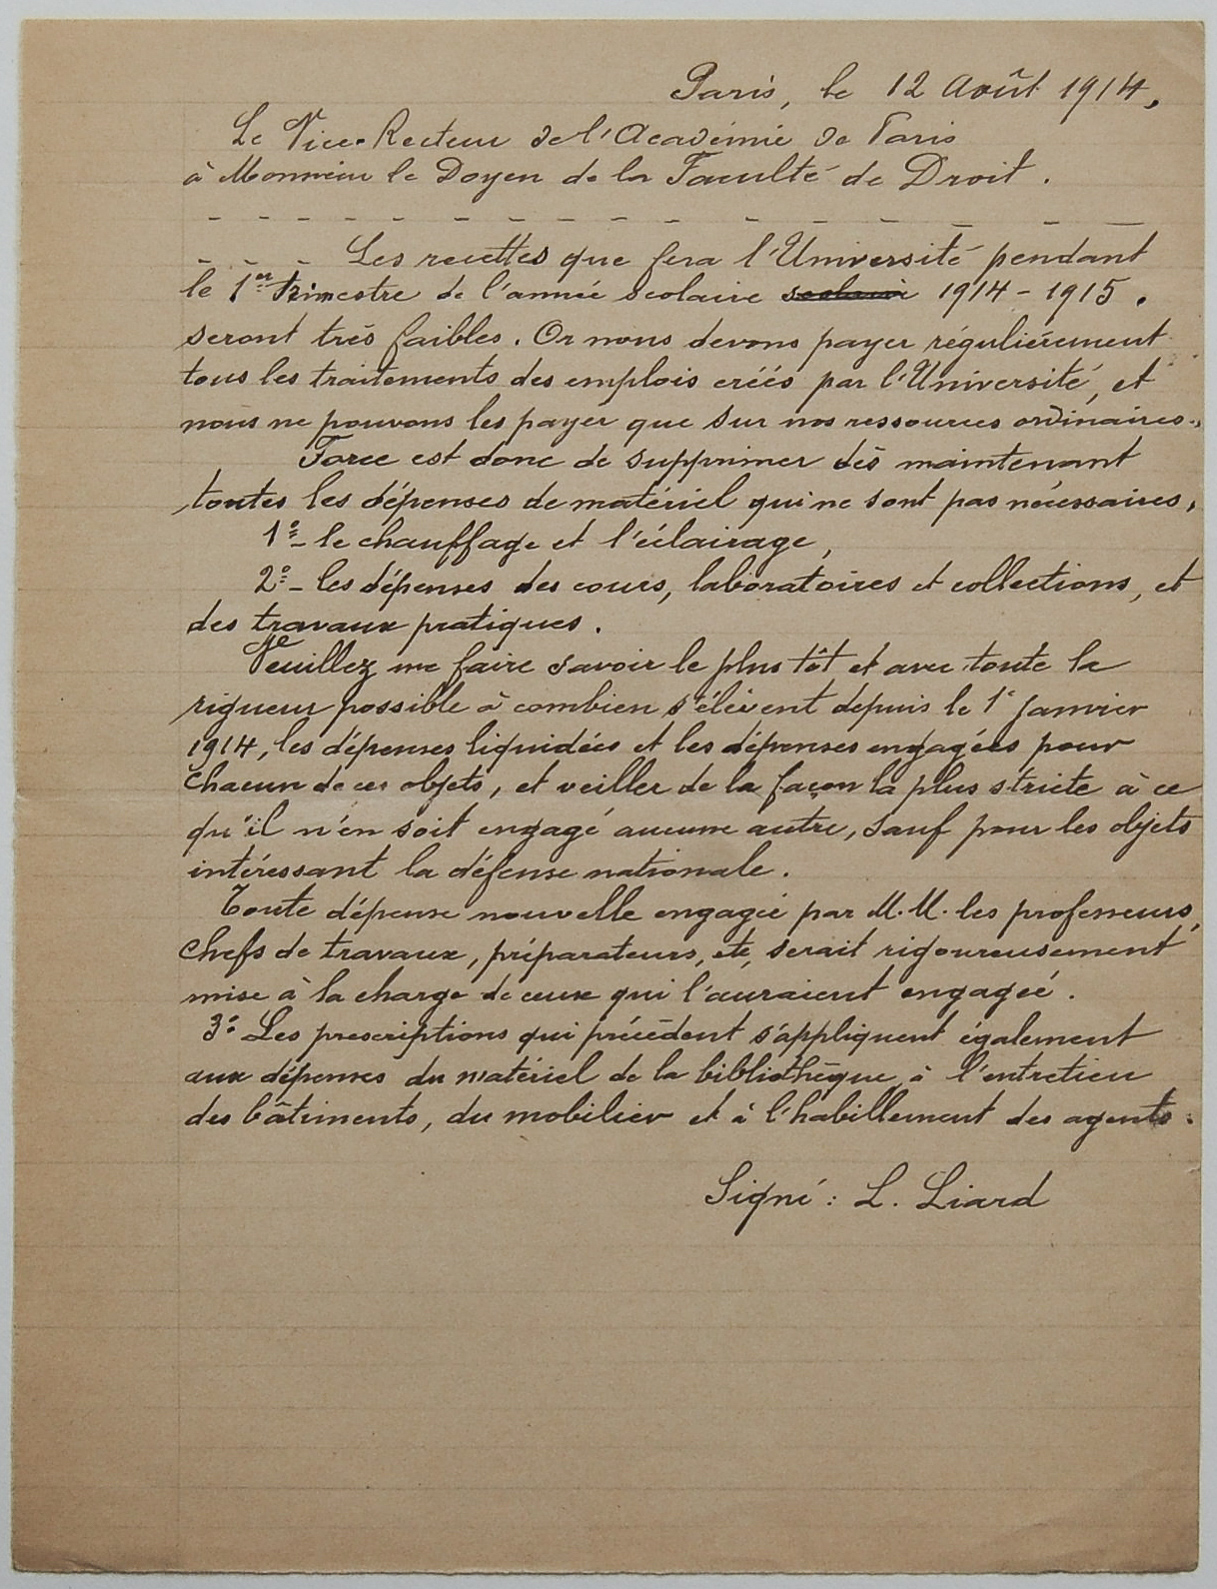 Paris, le 12 Août 1914.
Le Vice-Recteur de l'Académie de Paris
à Monsieur le Doyen de la Faculté de Droit.
Les recettes que fera l'Université pendant
le 1er trimestre de l'année scolaire scolaire 1914-1915.
seront très faibles. Or nous devons payer régulièrement
tous les traitements des emplois créés par l'Université, et
nous ne pouvons les payer que sur nos ressources ordinaires.
Force est donc de supprimer dès maintenant
toutes les dépenses de matériel qui ne sont pas nécessaires,
1º- le chauffage et l'éclairage,
2º- les dépenses des cours, laboratoires et collections, et
des travaux pratiques.
Veuillez me faire savoir le plus tôt et avec toute la
rigueur possible à combien s'élèvent depuis le 1er Janvier
1914, les dépenses liquidées et les dépenses engagées pour
chacun de ces objets, et veiller de la façon la plus stricte à ce
qu'il n'en soit engagé aucune autre, sauf pour les objets
intéressant la défense nationale.
Toute dépense nouvelle engagée par M.M. les professeurs,
chefs de travaux, préparateurs, etc, serait rigoureusement
mise à la charge de ceux qui l'auraient engagée.
3º Les prescriptions qui précèdent s'appliquent également
aux dépenses du matériel de la bibliothèque, à l'entretien
des bâtiments, du mobilier et à l'habillement des agents.
Signé: L. Liard